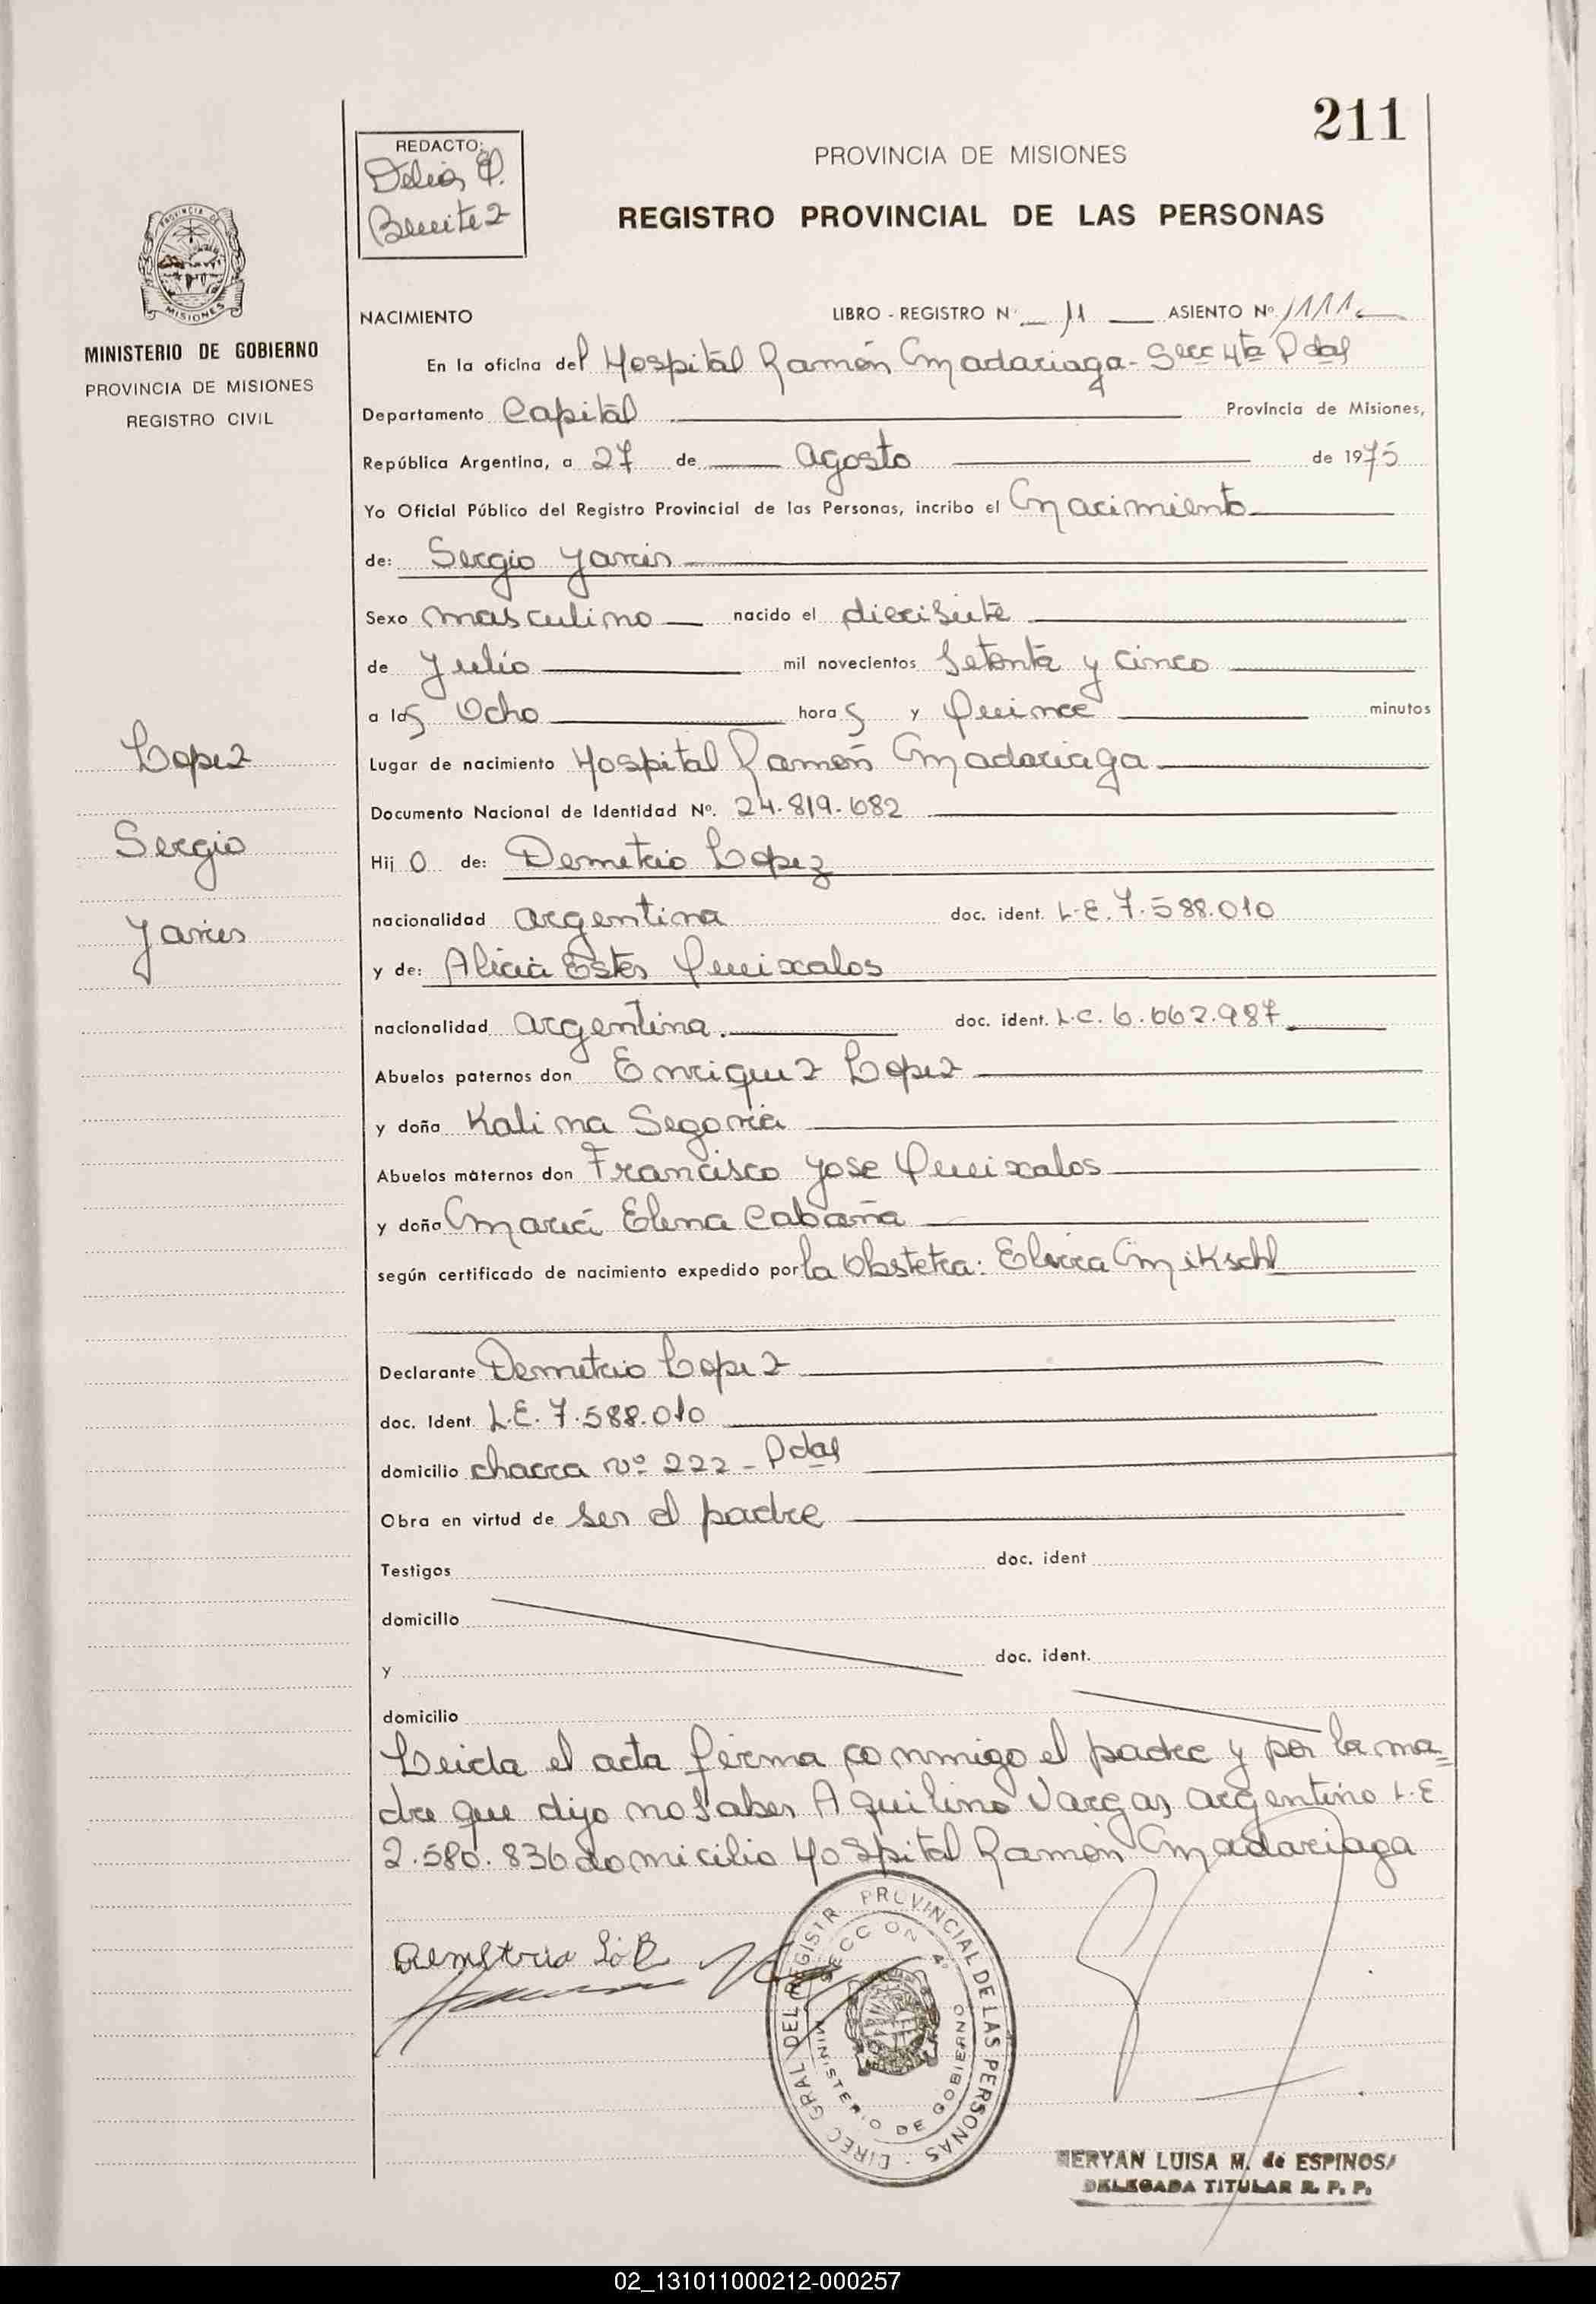 211
REDACTO:
Delia E.
Benitez
PROVINCIA DE MISIONES
REGISTRO PROVINCIAL DE LAS PERSONAS
PROVINCIA DE
MISIONES
MINISTERIO DE GOBIERNO
PROVINCIA DE MISIONES
REGISTRO CIVIL
NACIMIENTO LIBRO - REGISTRO Nº 11 ASIENTO Nº 1111
En la oficina del Hospital Ramón Madariaga - Secc 4ta Pdas
Departamento Capital Provincia de Misiones,
República Argentina, a 27 de agosto de 1975
Yo Oficial Público del Registro Provincial de las Personas, incribo el Nacimiento
de: Sergio Javier
Sexo masculino nacido el diecisiete
de Julio mil novecientos Setenta y cinco
a las Ocho horas y Quince minutos
Lugar de nacimiento Hospital Ramón Madariaga
Documento Nacional de Identidad Nº. 24.819.682
Hijo de: Demetrio Lopez
nacionalidad argentina doc. ident. L.E. 7.588.010
y de: Alicia Ester Quirxalos
nacionalidad argentina. doc. ident. L.C. 6.662.987
Abuelos paternos don Enriquez Lopez
y doña Kalina Segovia
Abuelos maternos don Francisco Jose Quirxalos
y doña Maria Elena Cabaña
según certificado de nacimiento expedido por la Obstetra: Elvira Mikschl
Declarante Demetrio Lopez
doc. Ident. L.E. 7.588.010
domicilio chacra nº 222 - Pdas
Obra en virtud de ser el padre
Testigos doc. ident
domicilio
y doc. ident.
domicilio
Leida el acta firma conmigo el padre y por la ma=
dre que dijo no saber Aquilino Vargas argentino L.E
2.580.836 domicilio Hospital Ramón Madariaga
Lopez
Sergio
Javier
DIREC GRAL DEL REGISTR PROVINCIAL DE LAS PERSONAS
SECCION 4ª
MINISTERIO DE GOBIERNO
MERYAN LUISA M. de ESPINOSA
DELEGADA TITULAR R. P. P.
02_131011000212-000257